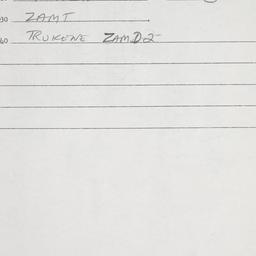 30 ZAMT
60 TRUKENE ZAMD2